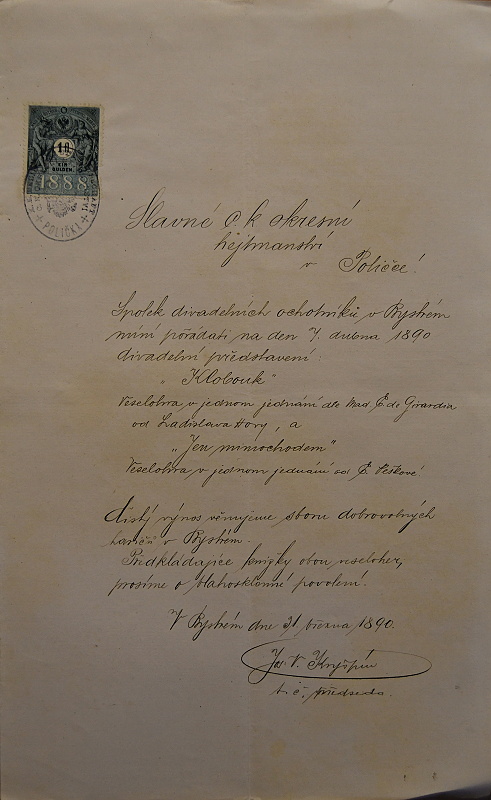 1 fl.
EIN
GULDEN
1888
POLIČKA
Slavné c. k. okresní
hejtmanství
v Poličce!
Spolek divadelních ochotníků v Bystrém
míní pořádati na den 7. dubna 1890
divadelní představení:
„Klobouk"
Veselohra v jednom jednání dle Mad. E. de Girardin
od Ladislava Hory, a
„Jen mimochodem"
Veselohra v jednom jednání od E. Peškové
Čistý výnos věnujeme sboru dobrovolných
hasičů v Bystrém.
Předkládajíce knížky obou veseloher,
prosíme o blahosklonné povolení.
V Bystrém dne 31 března 1890.
Jos. V. Kryšpín
t. č. předseda.